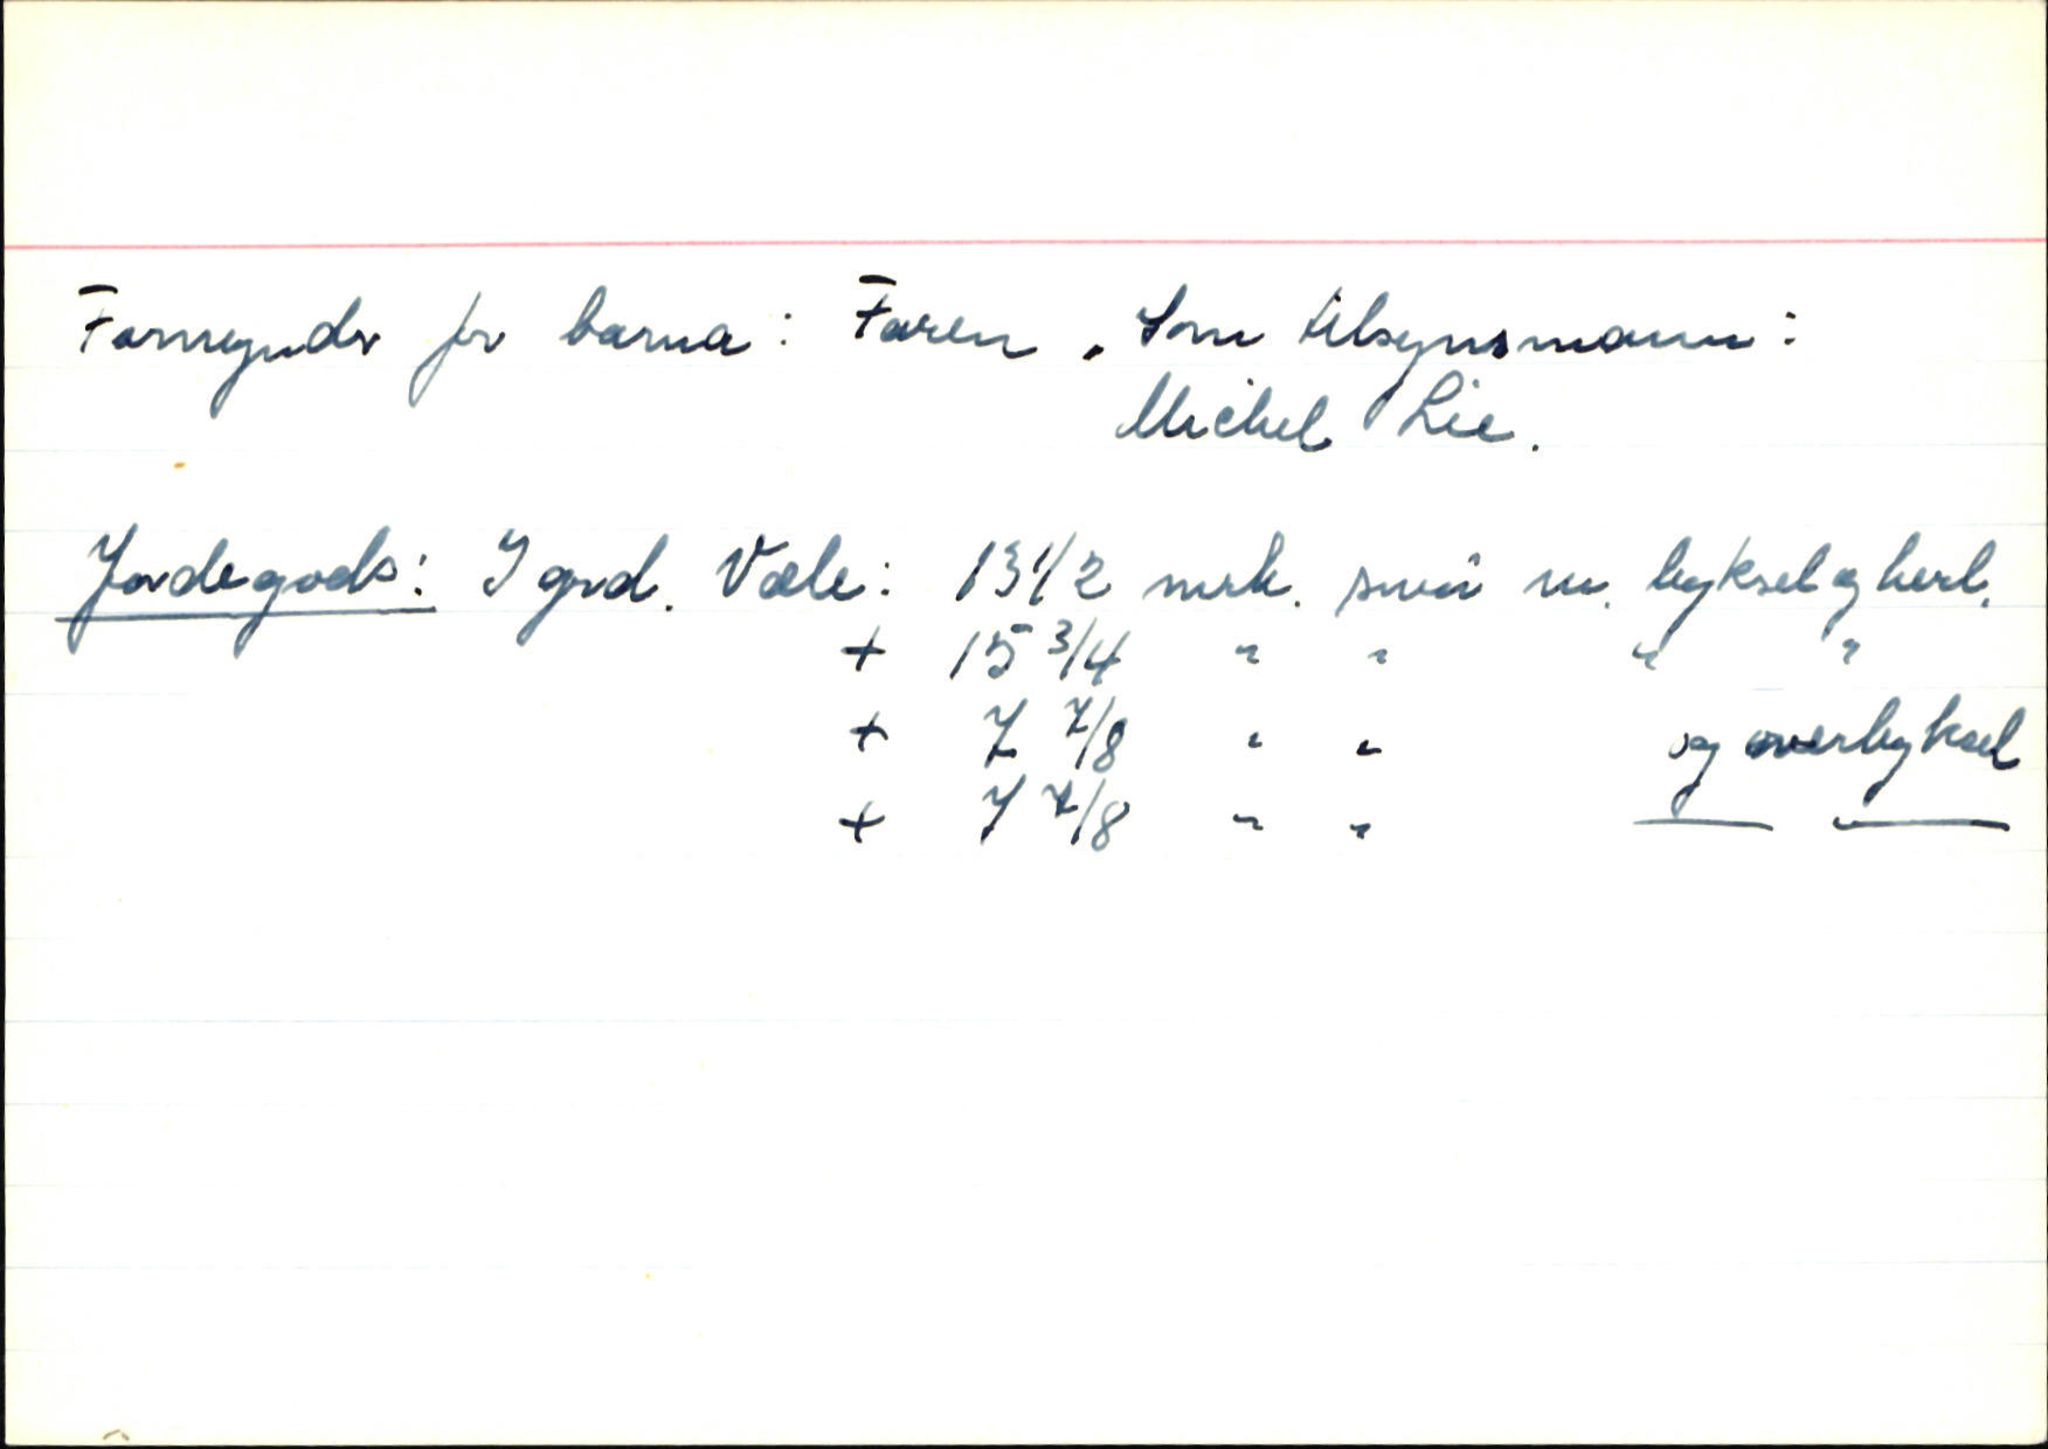 Formynder for barna: Faren. Som tilsynsmann:
Michel Lie.
Jordegods: I grd. Vale: 13 1/2 mrk. smør m. byksel og herl.
+ 15 3/4 " " " "
+ 7 7/8 " " og overbyksel
+ 7 7/8 " " — —